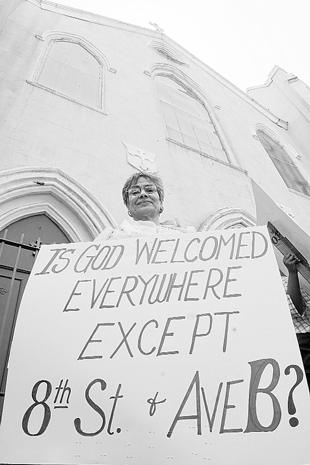 IS GOD WELCOMED
EVERYWHERE
EXCEPT
8th St. & AVE B?